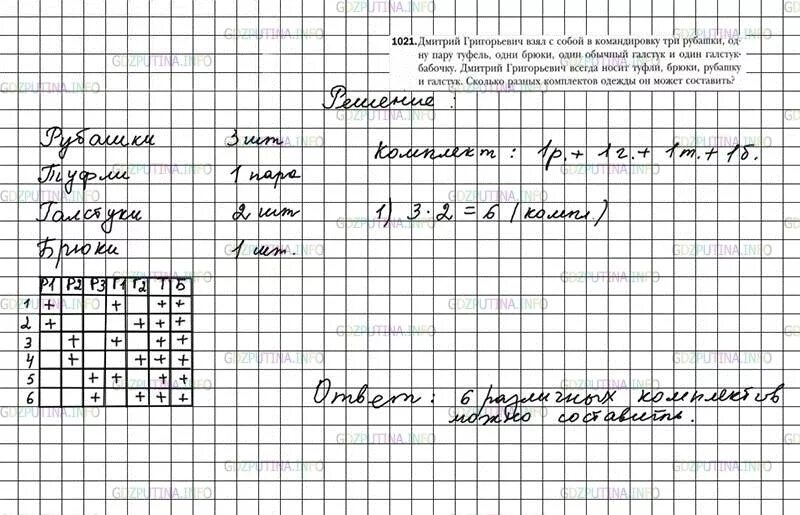 1021. Дмитрий Григорьевич взял с собой в командировку три рубашки, од-
ну пару туфель, одни брюки, один обычный галстук и один галстук-
бабочку. Дмитрий Григорьевич всегда носит туфли, брюки, рубашку
и галстук. Сколько разных комплектов одежды он может составить?
Решение :
Рубашки 3 шт
Туфли 1 пара
Галстуки 2 шт
Брюки 1 шт.
Комплект : 1р. + 1г. + 1т. + 1б.
1) 3 · 2 = 6 (компл.)
Р1 Р2 Р3 Г1 Г2 Т Б
1 + + + +
2 + + + +
3 + + + +
4 + + + +
5 + + + +
6 + + + +
Ответ : 6 различных комплектов
можно составить.
GDZPUTINA.INFO